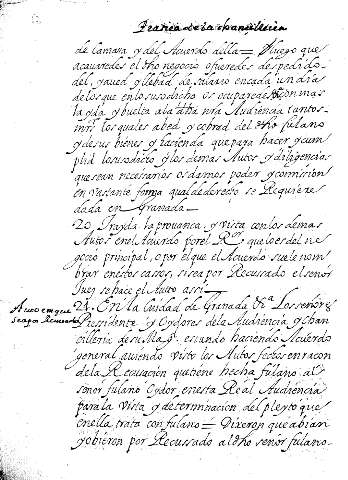 Pratica de la chancilleria
de Camara y del Acuerdo della = Y luego que
acavaredes el dho negocio os vengais despedido
del, y aved y llebad de salario en cada un dia
de los que en lo susodicho os ocuparedes con mas
la yda y buelta a la dha nra Audiencia tantos
mrs los quales abed y cobrad del dho fulano
y de sus bienes y hacienda que para hacer y cum
plir lo susodicho y los demas Autos y diligencias
que sean necesarios os damos poder y comision
en vastante forma qual de derecho se Requiere
dada en Granada
20. Trayda la provanca, y vista con los demas
Autos en el Acuerdo por el Ror que lo es del ne
gocio principal, o por el que el Acuerdo suele nom
brar en estos casos, si sea por Recussado el señor
Juez se hace el Auto assi
Auto en que
se a por Recusado
21. En la Ciudad de Granada &a Los señores
Presidente y Oydores de la Audiencia y chan
cilleria de su Magd. estando haciendo Acuerdo
general aviendo visto los Autos fechos en racon
de la Recusacion que tiene hecha fulano al
señor fulano Oydor en esta Real Audiencia
para la vista y determinacion del pleyto que
en ella trata con fulano = Dixeron que abian
y obieron por Recussado al dho señor fulano.